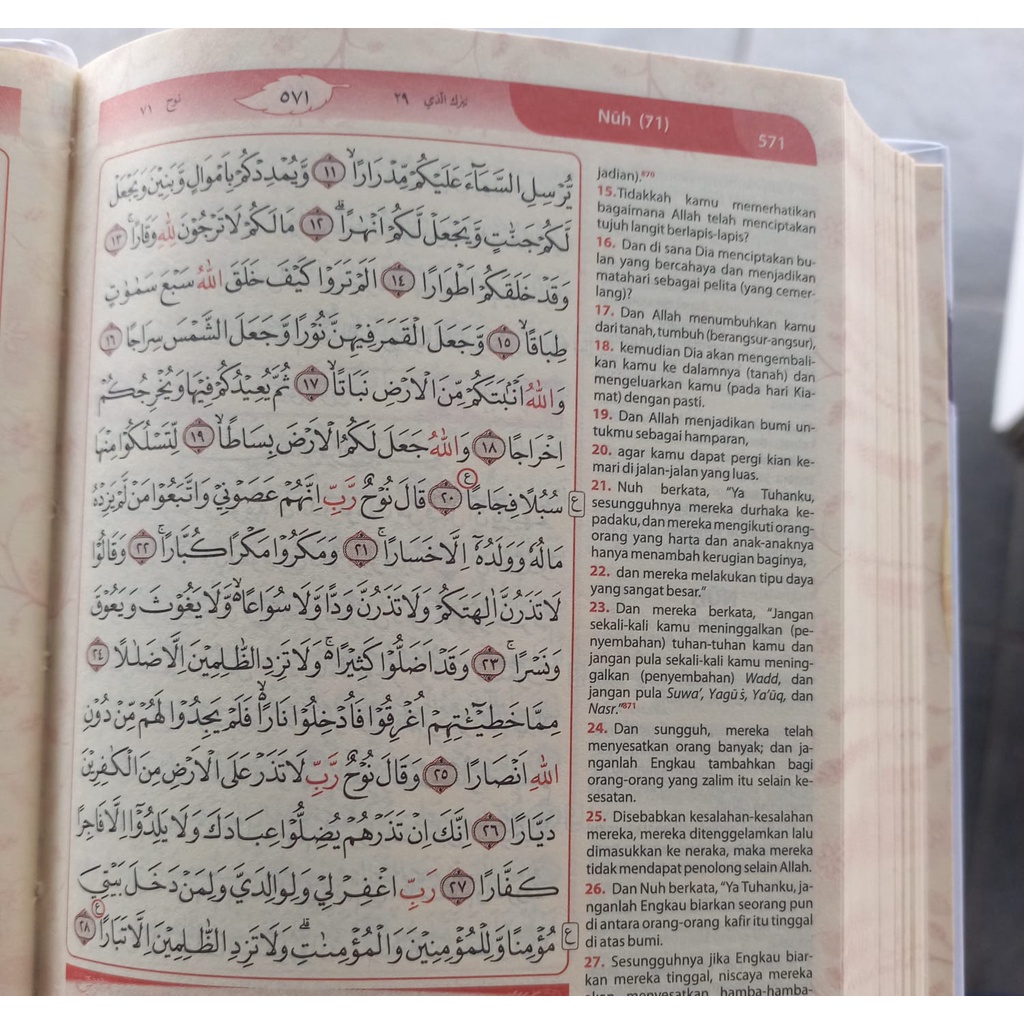 نوح ٧١
٥٧١
تبرك الذي ٢٩
Nūh (71)
571
يُّرْسِلِ السَّمَاۤءَ عَلَيْكُمْ مِّدْرَارًاۙ ١١ وَّيُمْدِدْكُمْ بِاَمْوَالٍ وَّبَنِيْنَ وَيَجْعَلْ
لَّكُمْ جَنّٰتٍ وَّيَجْعَلْ لَّكُمْ اَنْهٰرًاۗ ١٢ مَا لَكُمْ لَا تَرْجُوْنَ لِلّٰهِ وَقَارًاۚ ١٣
وَقَدْ خَلَقَكُمْ اَطْوَارًا ١٤ اَلَمْ تَرَوْا كَيْفَ خَلَقَ اللّٰهُ سَبْعَ سَمٰوٰتٍ
طِبَاقًاۙ ١٥ وَّجَعَلَ الْقَمَرَ فِيْهِنَّ نُوْرًا وَّجَعَلَ الشَّمْسَ سِرَاجًا ١٦
وَاللّٰهُ اَنْۢبَتَكُمْ مِّنَ الْاَرْضِ نَبَاتًاۙ ١٧ ثُمَّ يُعِيْدُكُمْ فِيْهَا وَيُخْرِجُكُمْ
اِخْرَاجًا ١٨ وَاللّٰهُ جَعَلَ لَكُمُ الْاَرْضَ بِسَاطًاۙ ١٩ لِّتَسْلُكُوْا مِنْهَا
سُبُلًا فِجَاجًا ࣖ ٢٠ قَالَ نُوْحٌ رَّبِّ اِنَّهُمْ عَصَوْنِيْ وَاتَّبَعُوْا مَنْ لَّمْ يَزِدْهُ
مَالُهٗ وَوَلَدُهٗٓ اِلَّا خَسَارًاۚ ٢١ وَمَكَرُوْا مَكْرًا كُبَّارًاۚ ٢٢ وَقَالُوْا
لَا تَذَرُنَّ اٰلِهَتَكُمْ وَلَا تَذَرُنَّ وَدًّا وَّلَا سُوَاعًا ەۙ وَّلَا يَغُوْثَ وَيَعُوْقَ
وَنَسْرًاۚ ٢٣ وَقَدْ اَضَلُّوْا كَثِيْرًا ەۚ وَلَا تَزِدِ الظّٰلِمِيْنَ اِلَّا ضَلٰلًا ٢٤
مِمَّا خَطِيْۤـٰٔتِهِمْ اُغْرِقُوْا فَاُدْخِلُوْا نَارًا ەۙ فَلَمْ يَجِدُوْا لَهُمْ مِّنْ دُوْنِ
اللّٰهِ اَنْصَارًا ٢٥ وَقَالَ نُوْحٌ رَّبِّ لَا تَذَرْ عَلَى الْاَرْضِ مِنَ الْكٰفِرِيْنَ
دَيَّارًا ٢٦ اِنَّكَ اِنْ تَذَرْهُمْ يُضِلُّوْا عِبَادَكَ وَلَا يَلِدُوْٓا اِلَّا فَاجِرًا
كَفَّارًا ٢٧ رَبِّ اغْفِرْ لِيْ وَلِوَالِدَيَّ وَلِمَنْ دَخَلَ بَيْتِيَ
مُؤْمِنًا وَّلِلْمُؤْمِنِيْنَ وَالْمُؤْمِنٰتِۗ وَلَا تَزِدِ الظّٰلِمِيْنَ اِلَّا تَبَارًا ࣖ ٢٨
ع
ع
jadian).⁸⁷⁰
15. Tidakkah kamu memerhatikan
bagaimana Allah telah menciptakan
tujuh langit berlapis-lapis?
16. Dan di sana Dia menciptakan bu-
lan yang bercahaya dan menjadikan
matahari sebagai pelita (yang cemer-
lang)?
17. Dan Allah menumbuhkan kamu
dari tanah, tumbuh (berangsur-angsur),
18. kemudian Dia akan mengembali-
kan kamu ke dalamnya (tanah) dan
mengeluarkan kamu (pada hari Kia-
mat) dengan pasti.
19. Dan Allah menjadikan bumi un-
tukmu sebagai hamparan,
20. agar kamu dapat pergi kian ke-
mari di jalan-jalan yang luas.
21. Nuh berkata, "Ya Tuhanku,
sesungguhnya mereka durhaka ke-
padaku, dan mereka mengikuti orang-
orang yang harta dan anak-anaknya
hanya menambah kerugian baginya,
22. dan mereka melakukan tipu daya
yang sangat besar."
23. Dan mereka berkata, "Jangan
sekali-kali kamu meninggalkan (pe-
nyembahan) tuhan-tuhan kamu dan
jangan pula sekali-kali kamu mening-
galkan (penyembahan) Wadd, dan
jangan pula Suwa', Yagūṡ, Ya'ūq, dan
Nasr."⁸⁷¹
24. Dan sungguh, mereka telah
menyesatkan orang banyak; dan ja-
nganlah Engkau tambahkan bagi
orang-orang yang zalim itu selain ke-
sesatan.
25. Disebabkan kesalahan-kesalahan
mereka, mereka ditenggelamkan lalu
dimasukkan ke neraka, maka mereka
tidak mendapat penolong selain Allah.
26. Dan Nuh berkata, "Ya Tuhanku, ja-
nganlah Engkau biarkan seorang pun
di antara orang-orang kafir itu tinggal
di atas bumi.
27. Sesungguhnya jika Engkau biar-
kan mereka tinggal, niscaya mereka
akan menyesatkan hamba-hamba-